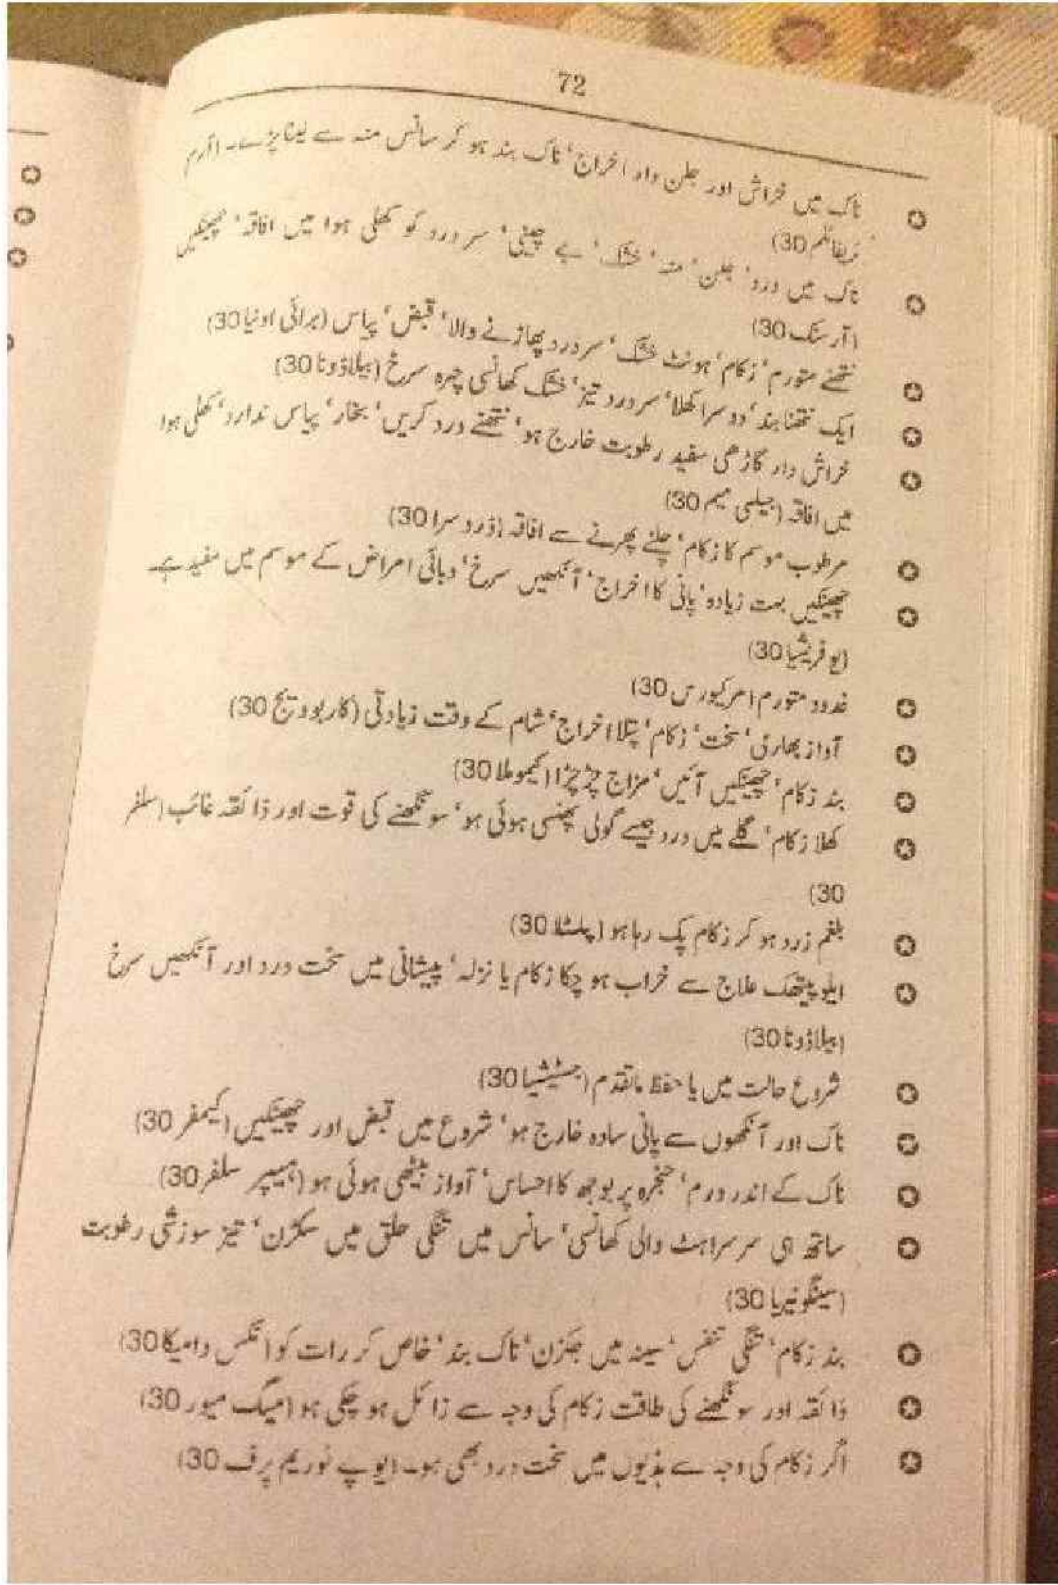 72
✪ ناک میں خراش اور جلن دار اخراج، ناک بند ہو کر سانس منہ سے لینا پڑے۔ (آرم
ٹریفائلم 30)
✪ ناک میں درد، جلن، منہ، خشک، بے چینی، سر درد کو کھلی ہوا میں افاقہ، چھینکیں
(آرسنک 30)
✪ نتھنے متورم، زکام، ہونٹ خشک، سر درد پھاڑنے والا، قبض، پیاس (برائی اونیا 30)
✪ ایک نتھنا بند، دوسرا کھلا، سر درد تیز، خشک کھانسی چہرہ سرخ (بیلاڈونا 30)
✪ خراش دار گاڑھی سفید رطوبت خارج ہو، نتھنے درد کریں، بخار، پیاس ندارد، کھلی ہوا
میں افاقہ (جیلسی میم 30)
✪ مرطوب موسم کا زکام، چلنے پھرنے سے افاقہ (ڈروسرا 30)
✪ چھینکیں بہت زیادہ، پانی کا اخراج، آنکھیں سرخ، وبائی امراض کے موسم میں مفید ہے
(یوفریشیا 30)
✪ غدود متورم (مرکیورس 30)
✪ آواز بھاری، سخت، زکام، پتلا اخراج، شام کے وقت زیادتی (کاربوویج 30)
✪ بند زکام، چھینکیں آئیں، مزاج چڑچڑا (کیموملا 30)
✪ کھلا زکام، گلے میں درد جیسے گولی پھنسی ہوئی ہو، سونگھنے کی قوت اور ذائقہ غائب (سلفر
30)
✪ بلغم زرد ہو کر زکام پک رہا ہو (پلسٹلا 30)
✪ ایلوپیتھک علاج سے خراب ہو چکا زکام یا نزلہ، پیشانی میں سخت درد اور آنکھیں سرخ
(بیلاڈونا 30)
✪ شروع حالت میں یا حفظ ماتقدم (جسٹیشیا 30)
✪ ناک اور آنکھوں سے پانی سادہ خارج ہو، شروع میں قبض اور چھینکیں (کیمفر 30)
✪ ناک کے اندر ورم، حنجرہ پر بوجھ کا احساس، آواز بیٹھی ہوئی ہو (ہیپر سلفر 30)
✪ ساتھ ہی سرسراہٹ والی کھانسی، سانس میں تنگی حلق میں سکڑن، تیز سوزشی رطوبت
(سینگونیریا 30)
✪ بند زکام، تنگی تنفس، سینہ میں جکڑن، ناک بند، خاص کر رات کو (نکس وامیکا 30)
✪ ذائقہ اور سونگھنے کی طاقت زکام کی وجہ سے زائل ہو چکی ہو (میگ میور 30)
✪ اگر زکام کی وجہ سے ہڈیوں میں سخت درد بھی ہو۔ (یوپے ٹوریم پرف 30)